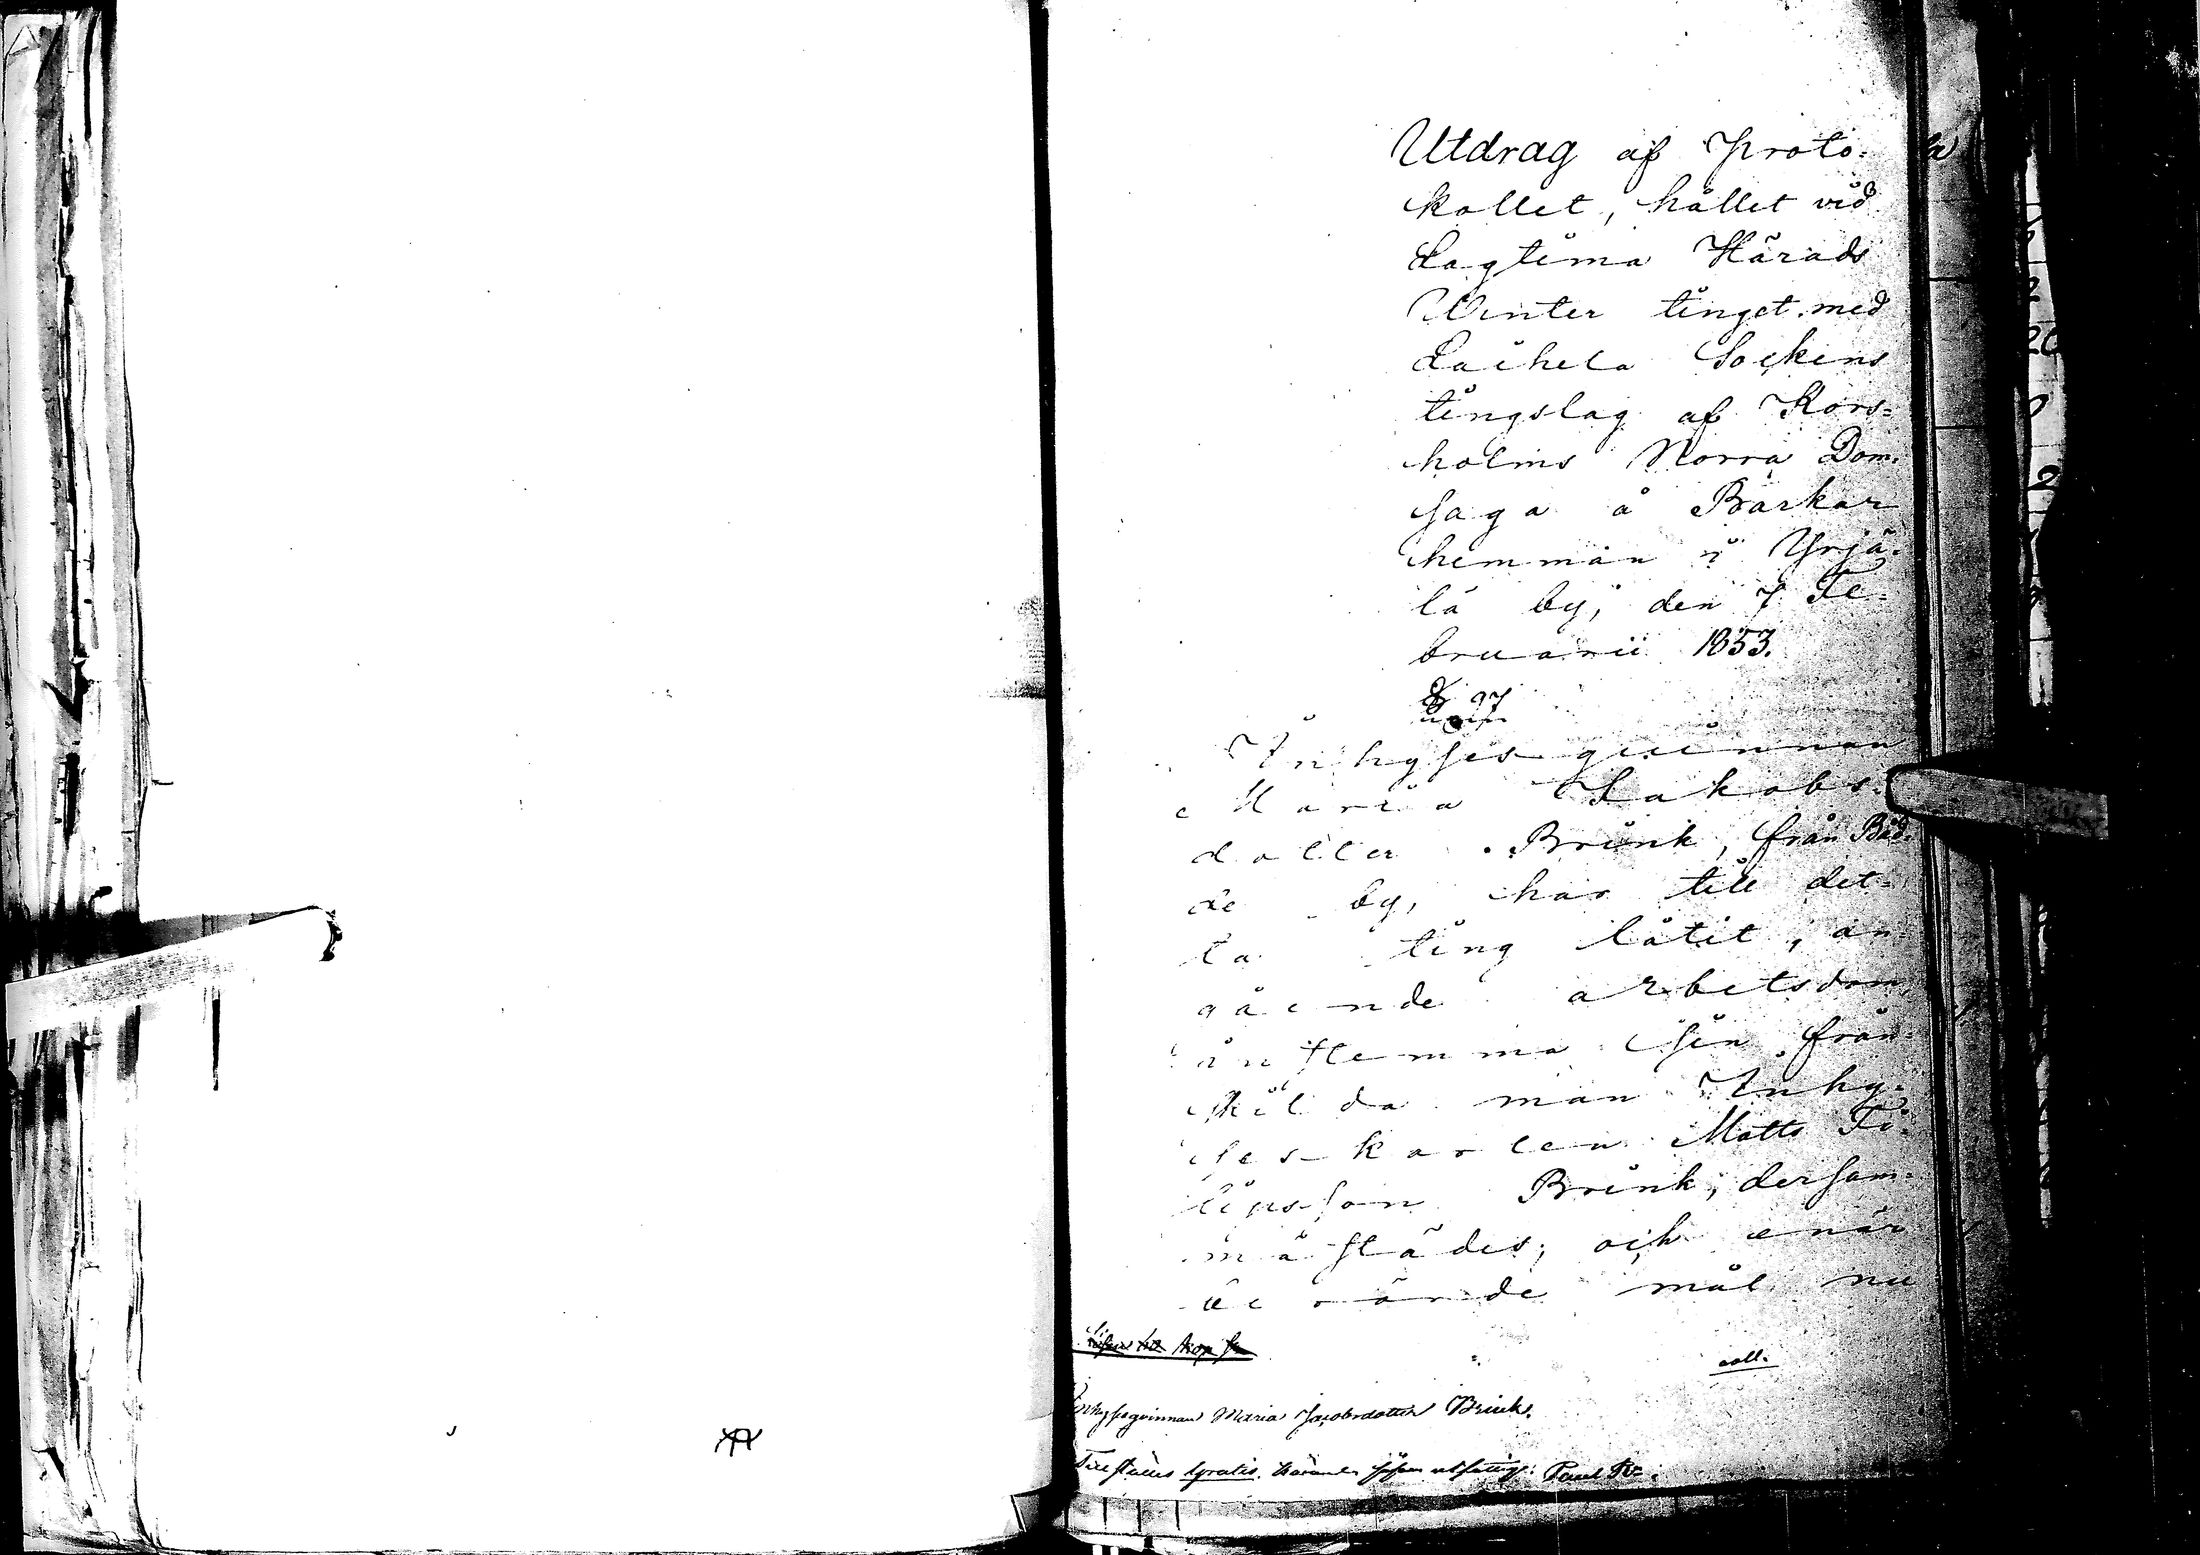 Utdrag af Proto=
kollet, hållet vid
Lagtima Härads
Winter tinget med
Laihela Sockens
tingslag af Kors=
holms Norra Dom=
saga å Barkar
hemman i Yrjä=
lä by, den 7 Fe=
bruarii 1853.
§ 97
Inhyses qvinnan
Maria Jakobs=
dotter Brink, från
by, har till det=
ta ting låtit, an=
gående arbetsdom,
instemma sin från=
skilda man Inhy=
ses karlen Matts
Brink, dersam=
mastädes; och enär
berörde mål nu
coll.
Inhysqvinnan Maria Jacobsdotter Brink.
Tillstälės Gratis